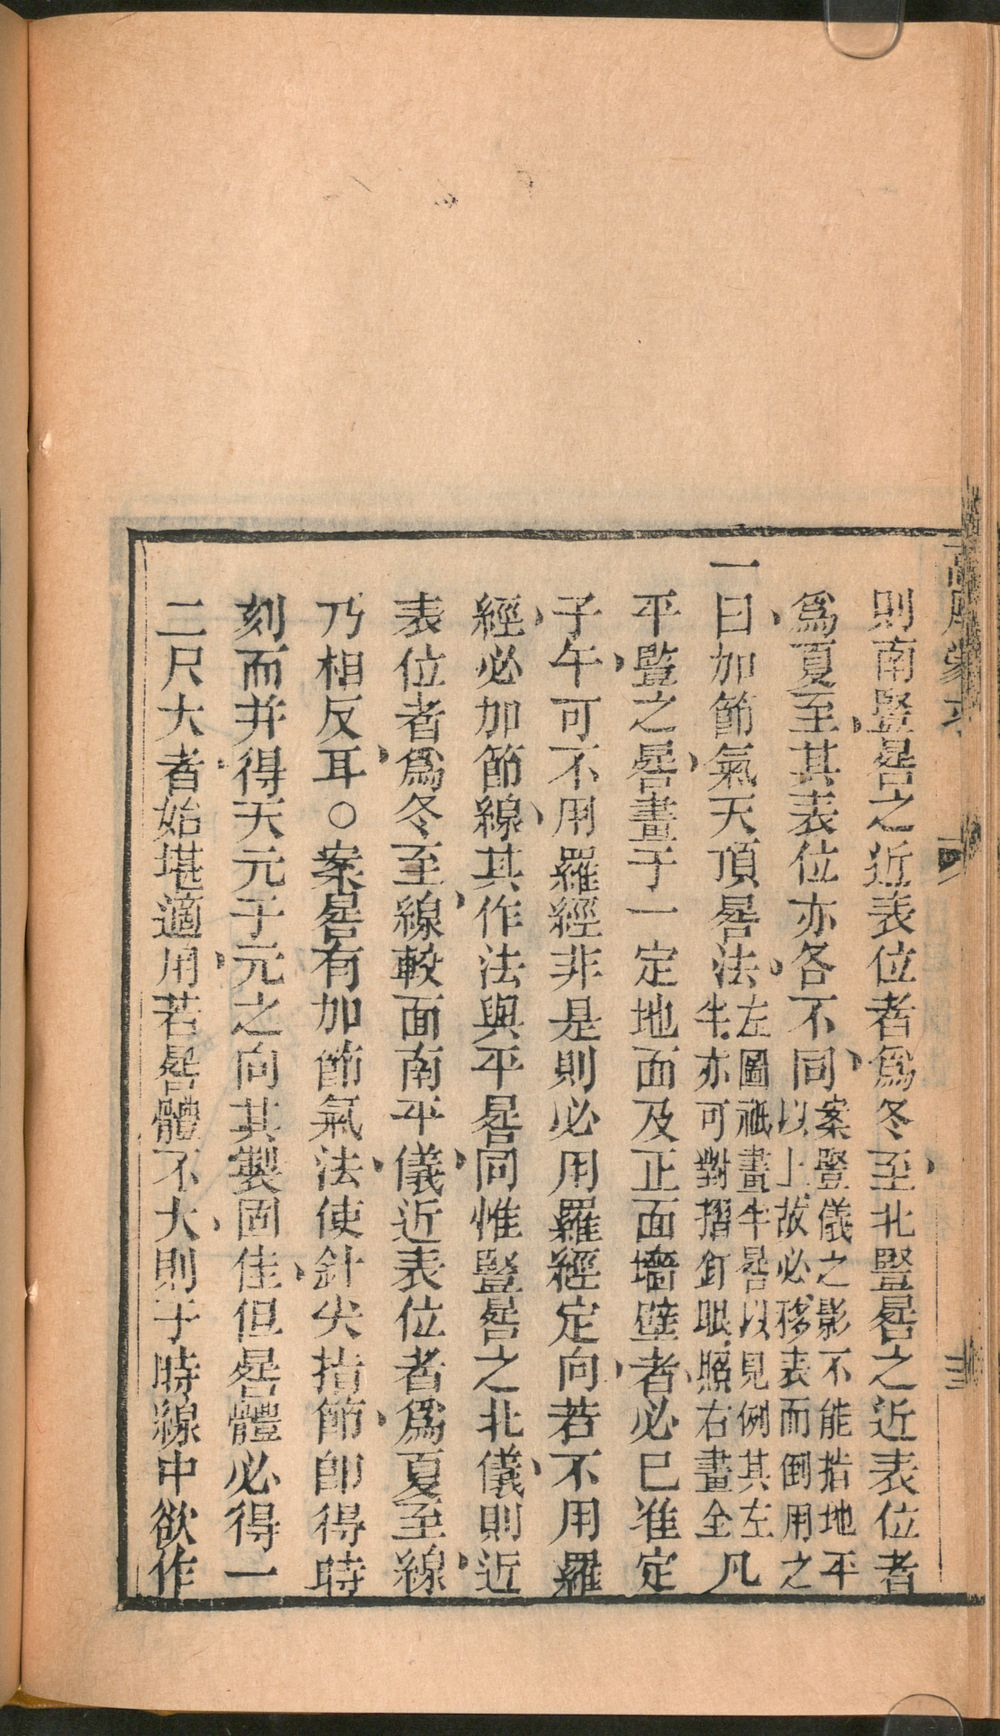 則南竪晷之近表位者爲冬至北竪晷之近表位者
爲夏至其表位亦各不同案竪儀之影不能指地平以上故必移表而倒用之
一曰加節氣天頂晷法左圖祇畫半晷以見例其左半亦可對摺釘眼照右畫全凡
平竪之晷畫于一定地面及正面墻壁者必已准定
子午可不用羅經非是則必用羅經定向若不用羅
經必加節線其作法與平晷同惟竪晷之北儀則近
表位者爲冬至線較面南平儀近表位者爲夏至線
乃相反耳○案晷有加節氣法使針尖指節即得時
刻而并得天元子元之向其製固佳但晷體必得一
二尺大者始堪適用若晷體不大則于時線中欲作